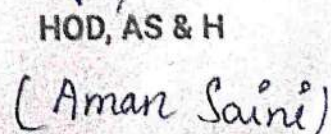 HOD, AS & H
(Aman Saini)